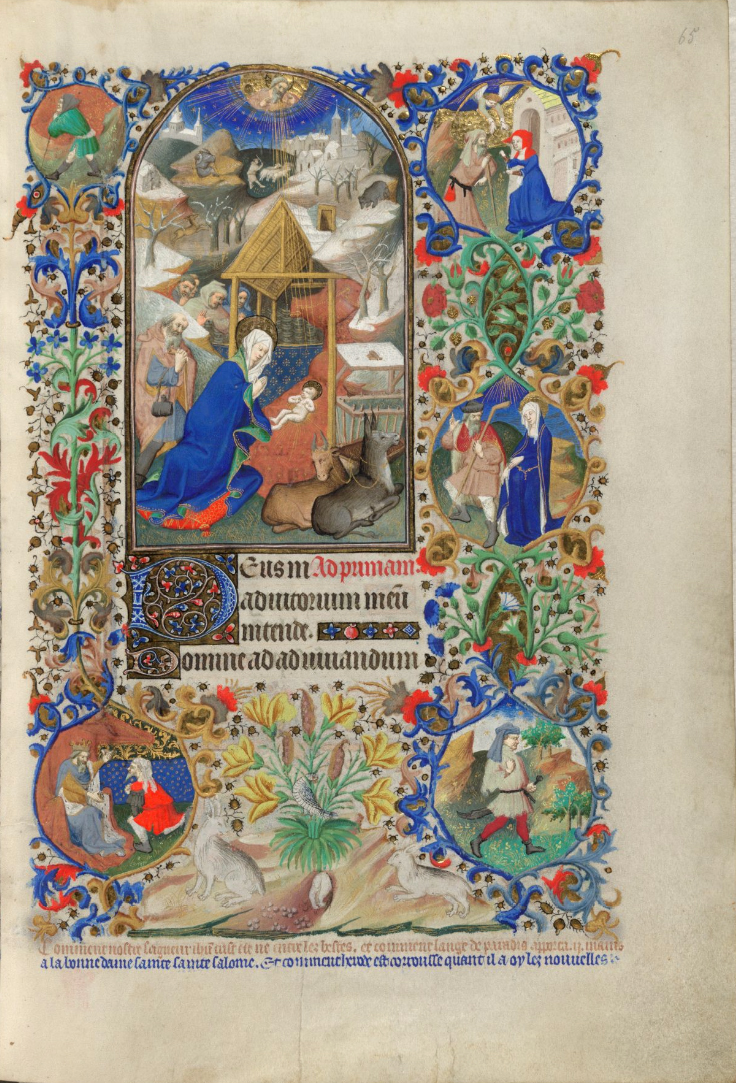 65
Deus in Ad primam.
adiutorium meū
intende.
Domine ad adiuuandum
Comment nostre seigneur ihū crist est ne entre les bestes. et comment lange de paradis apporta .ij. mains
a la bonne dame sainte sainte salome. Et comment herode est corrousse quant il a oy les nouuelles